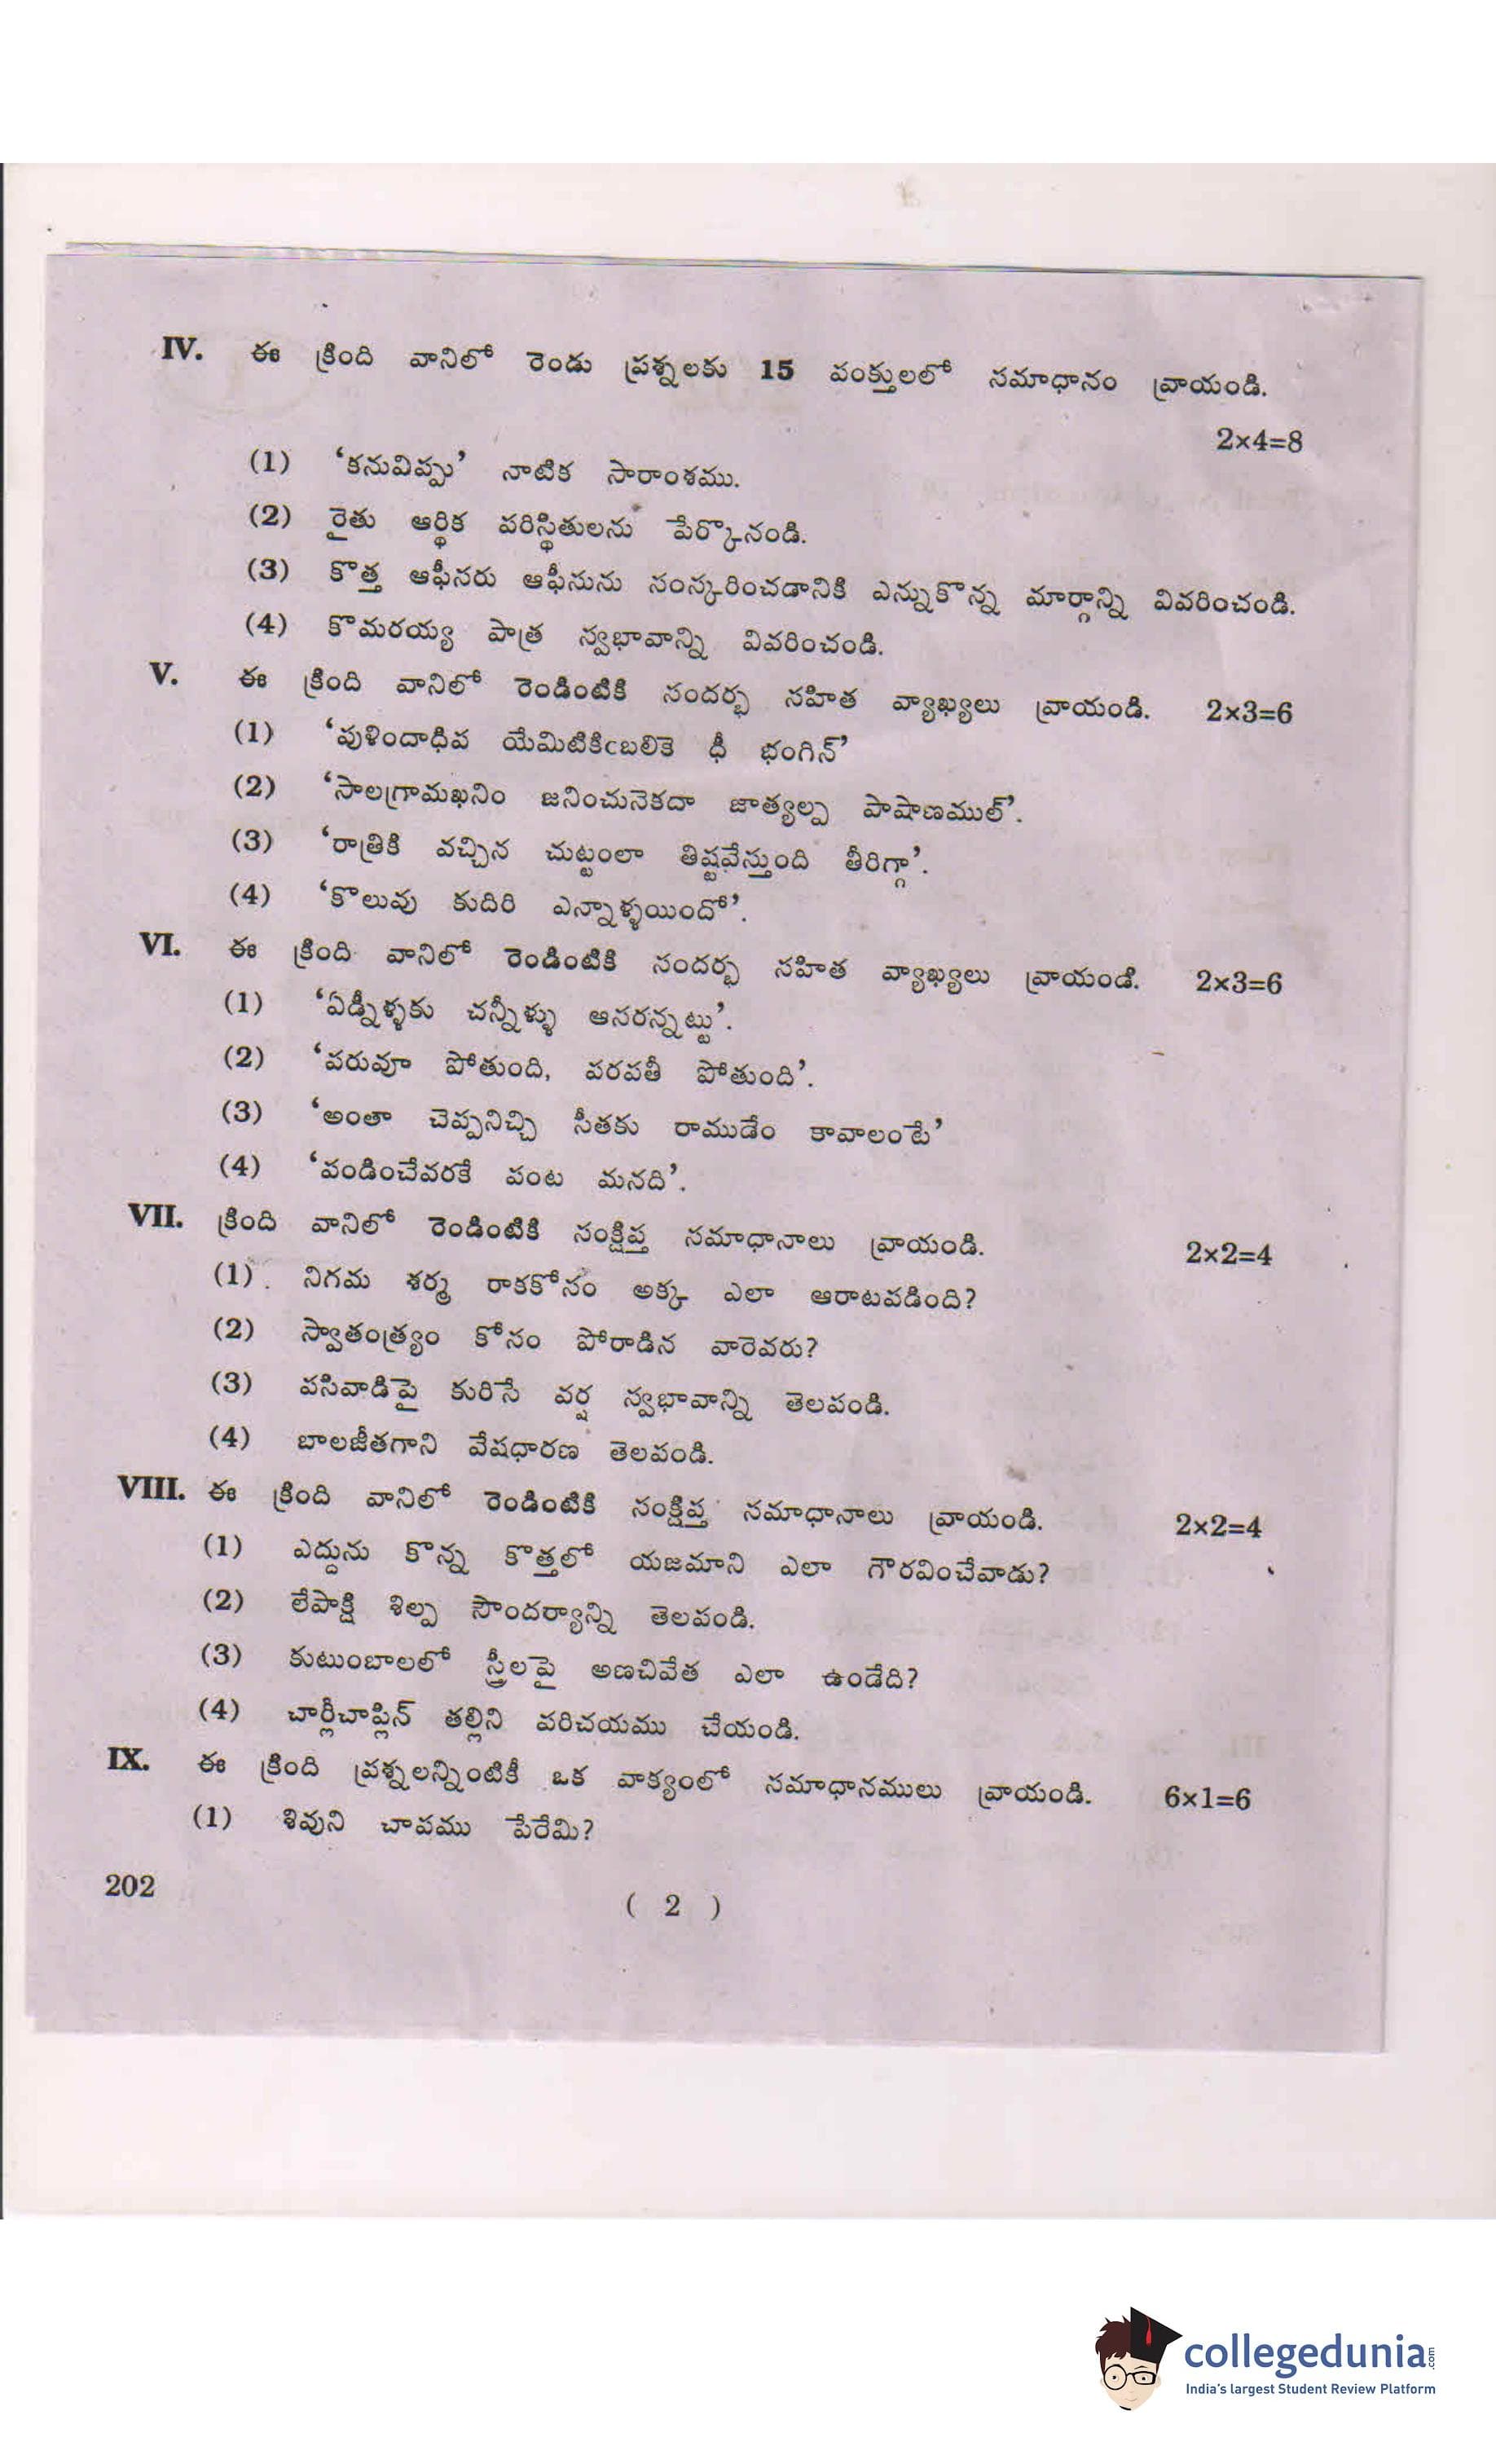 IV. ఈ క్రింది వానిలో రెండు ప్రశ్నలకు 15 పంక్తులలో సమాధానం వ్రాయండి.
2×4=8
(1) ‘కనువిప్పు’ నాటిక సారాంశము.
(2) రైతు ఆర్థిక పరిస్థితులను పేర్కొనండి.
(3) కొత్త ఆఫీసరు ఆఫీసును సంస్కరించడానికి ఎన్నుకొన్న మార్గాన్ని వివరించండి.
(4) కొమరయ్య పాత్ర స్వభావాన్ని వివరించండి.
V. ఈ క్రింది వానిలో రెండింటికి సందర్భ సహిత వ్యాఖ్యలు వ్రాయండి. 2×3=6
(1) ‘పుళిందాధిప యేమిటికిఁబలికె ధీ భంగిన్’
(2) ‘సాలగ్రామఖనిం జనించునెకదా జాత్యల్ప పాషాణముల్’.
(3) ‘రాత్రికి వచ్చిన చుట్టంలా తిష్టవేస్తుంది తీరిగ్గా’.
(4) ‘కొలువు కుదిరి ఎన్నాళ్ళయిందో’.
VI. ఈ క్రింది వానిలో రెండింటికి సందర్భ సహిత వ్యాఖ్యలు వ్రాయండి. 2×3=6
(1) ‘ఏడ్నీళ్ళకు చన్నీళ్ళు ఆసరన్నట్టు’.
(2) ‘పరువూ పోతుంది, పరపతీ పోతుంది’.
(3) ‘అంతా చెప్పనిచ్చి సీతకు రాముడేం కావాలంటే’
(4) ‘పండించేవరకే పంట మనది’.
VII. క్రింది వానిలో రెండింటికి సంక్షిప్త సమాధానాలు వ్రాయండి. 2×2=4
(1) నిగమ శర్మ రాకకోసం అక్క ఎలా ఆరాటపడింది?
(2) స్వాతంత్ర్యం కోసం పోరాడిన వారెవరు?
(3) పసివాడిపై కురిసే వర్ష స్వభావాన్ని తెలపండి.
(4) బాలజీతగాని వేషధారణ తెలపండి.
VIII. ఈ క్రింది వానిలో రెండింటికి సంక్షిప్త సమాధానాలు వ్రాయండి. 2×2=4
(1) ఎద్దును కొన్న కొత్తలో యజమాని ఎలా గౌరవించేవాడు?
(2) లేపాక్షి శిల్ప సౌందర్యాన్ని తెలపండి.
(3) కుటుంబాలలో స్త్రీలపై అణచివేత ఎలా ఉండేది?
(4) చార్లీచాప్లిన్ తల్లిని పరిచయము చేయండి.
IX. ఈ క్రింది ప్రశ్నలన్నింటికీ ఒక వాక్యంలో సమాధానములు వ్రాయండి. 6×1=6
(1) శివుని చాపము పేరేమి?
202
( 2 )
collegedunia.com
India's largest Student Review Platform